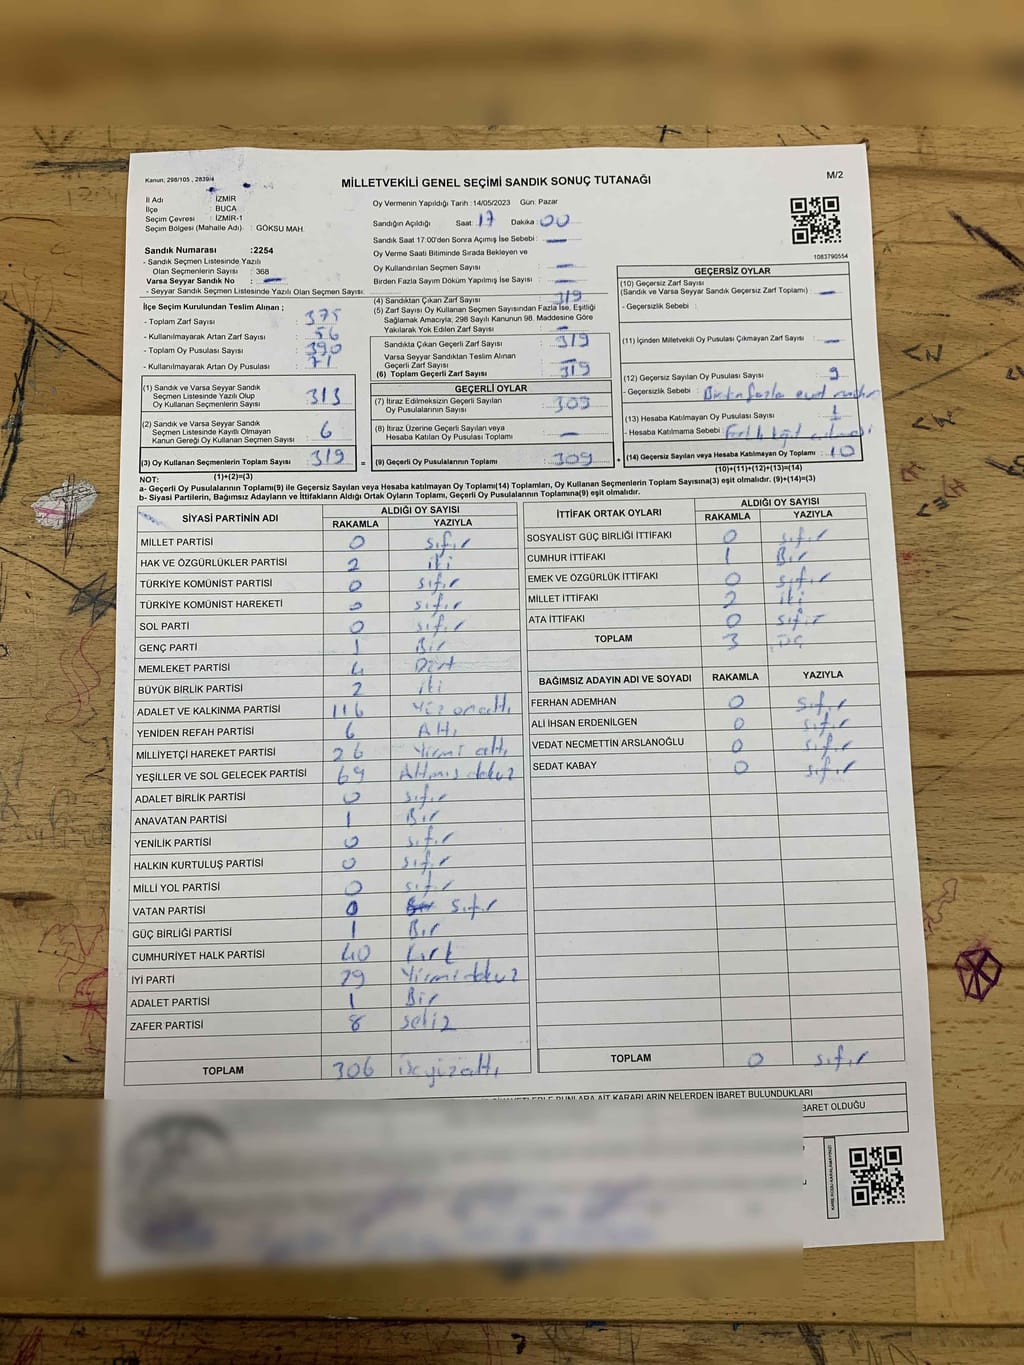 Kanun; 298/105 , 2839/4
M/2
MİLLETVEKİLİ GENEL SEÇİMİ SANDIK SONUÇ TUTANAĞI
İl Adı : İZMİR
İlçe : BUCA
Seçim Çevresi : İZMİR-1
Seçim Bölgesi (Mahalle Adı) : GÖKSU MAH.
Sandık Numarası :2254
- Sandık Seçmen Listesinde Yazılı
Olan Seçmenlerin Sayısı : 368
Varsa Seyyar Sandık No : —
- Seyyar Sandık Seçmen Listesinde Yazılı Olan Seçmen Sayısı:
İlçe Seçim Kurulundan Teslim Alınan ;
- Toplam Zarf Sayısı : 375
- Kullanılmayarak Artan Zarf Sayısı : 56
- Toplam Oy Pusulası Sayısı : 390
- Kullanılmayarak Artan Oy Pusulası : 71
(1) Sandık ve Varsa Seyyar Sandık
Seçmen Listesinde Yazılı Olup
Oy Kullanan Seçmenlerin Sayısı : 313
(2) Sandık ve Varsa Seyyar Sandık
Seçmen Listesinde Kayıtlı Olmayan
Kanun Gereği Oy Kullanan Seçmen Sayısı : 6
(3) Oy Kullanan Seçmenlerin Toplam Sayısı : 319
(1)+(2)=(3)
Oy Vermenin Yapıldığı Tarih : 14/05/2023 Gün: Pazar
Sandığın Açıldığı Saat: 17 Dakika: 00
Sandık Saat 17:00'den Sonra Açımış İse Sebebi : —
Oy Verme Saati Bitiminde Sırada Bekleyen ve
Oy Kullandırılan Seçmen Sayısı : —
Birden Fazla Sayım Döküm Yapılmış İse Sayısı : —
(4) Sandıktan Çıkan Zarf Sayısı : 319
(5) Zarf Sayısı Oy Kullanan Seçmen Sayısından Fazla İse, Eşitliği
Sağlamak Amacıyla; 298 Sayılı Kanunun 98. Maddesine Göre
Yakılarak Yok Edilen Zarf Sayısı : —
Sandıkta Çıkan Geçerli Zarf Sayısı : 319
Varsa Seyyar Sandıktan Teslim Alınan
Geçerli Zarf Sayısı : —
(6) Toplam Geçerli Zarf Sayısı : 319
GEÇERLİ OYLAR
(7) İtiraz Edilmeksizin Geçerli Sayılan
Oy Pusulalarının Sayısı : 309
(8) İtiraz Üzerine Geçerli Sayılan veya
Hesaba Katılan Oy Pusulası Toplamı : —
= (9) Geçerli Oy Pusulalarının Toplamı : 309
1083790554
GEÇERSİZ OYLAR
(10) Geçersiz Zarf Sayısı
(Sandık ve Varsa Seyyar Sandık Geçersiz Zarf Toplamı) : —
- Geçersizlik Sebebi :
(11) İçinden Milletvekili Oy Pusulası Çıkmayan Zarf Sayısı : —
(12) Geçersiz Sayılan Oy Pusulası Sayısı : 9
- Geçersizlik Sebebi : Birden fazla evet
(13) Hesaba Katılmayan Oy Pusulası Sayısı : 1
- Hesaba Katılmama Sebebi :
+ (14) Geçersiz Sayılan veya Hesaba Katılmayan Oy Toplamı : 10
(10)+(11)+(12)+(13)=(14)
NOT:
a- Geçerli Oy Pusulalarının Toplamı(9) ile Geçersiz Sayılan veya Hesaba katılmayan Oy Toplamı(14) Toplamları, Oy Kullanan Seçmenlerin Toplam Sayısına(3) eşit olmalıdır. (9)+(14)=(3)
b- Siyasi Partilerin, Bağımsız Adayların ve İttifakların Aldığı Ortak Oyların Toplamı, Geçerli Oy Pusulalarının Toplamına(9) eşit olmalıdır.
SİYASİ PARTİNİN ADI ALDIĞI OY SAYISI
RAKAMLA YAZIYLA
MİLLET PARTİSİ 0 sıfır
HAK VE ÖZGÜRLÜKLER PARTİSİ 2 iki
TÜRKİYE KOMÜNİST PARTİSİ 0 sıfır
TÜRKİYE KOMÜNİST HAREKETİ 0 sıfır
SOL PARTİ 0 sıfır
GENÇ PARTİ 1 Bir
MEMLEKET PARTİSİ 4 Dört
BÜYÜK BİRLİK PARTİSİ 2 iki
ADALET VE KALKINMA PARTİSİ 116 Yüz onaltı
YENİDEN REFAH PARTİSİ 6 Altı
MİLLİYETÇİ HAREKET PARTİSİ 26 Yirmi altı
YEŞİLLER VE SOL GELECEK PARTİSİ 69 Altmış dokuz
ADALET BİRLİK PARTİSİ 0 sıfır
ANAVATAN PARTİSİ 1 Bir
YENİLİK PARTİSİ 0 sıfır
HALKIN KURTULUŞ PARTİSİ 0 sıfır
MİLLİ YOL PARTİSİ 0 sıfır
VATAN PARTİSİ 0 sıfır
GÜÇ BİRLİĞİ PARTİSİ 1 Bir
CUMHURİYET HALK PARTİSİ 40 kırk
İYİ PARTİ 29 Yirmidokuz
ADALET PARTİSİ 1 Bir
ZAFER PARTİSİ 8 sekiz
TOPLAM 306 üçyüzaltı
İTTİFAK ORTAK OYLARI ALDIĞI OY SAYISI
RAKAMLA YAZIYLA
SOSYALİST GÜÇ BİRLİĞİ İTTİFAKI 0 sıfır
CUMHUR İTTİFAKI 1 Bir
EMEK VE ÖZGÜRLÜK İTTİFAKI 0 sıfır
MİLLET İTTİFAKI 2 iki
ATA İTTİFAKI 0 sıfır
TOPLAM 3 üç
BAĞIMSIZ ADAYIN ADI VE SOYADI RAKAMLA YAZIYLA
FERHAN ADEMHAN 0 sıfır
ALİ İHSAN ERDENİLGEN 0 sıfır
VEDAT NECMETTİN ARSLANOĞLU 0 sıfır
SEDAT KABAY 0 sıfır
TOPLAM 0 sıfır
BUNLARA AİT KARARLARIN NELERDEN İBARET BULUNDUKLARI
OLDUĞU